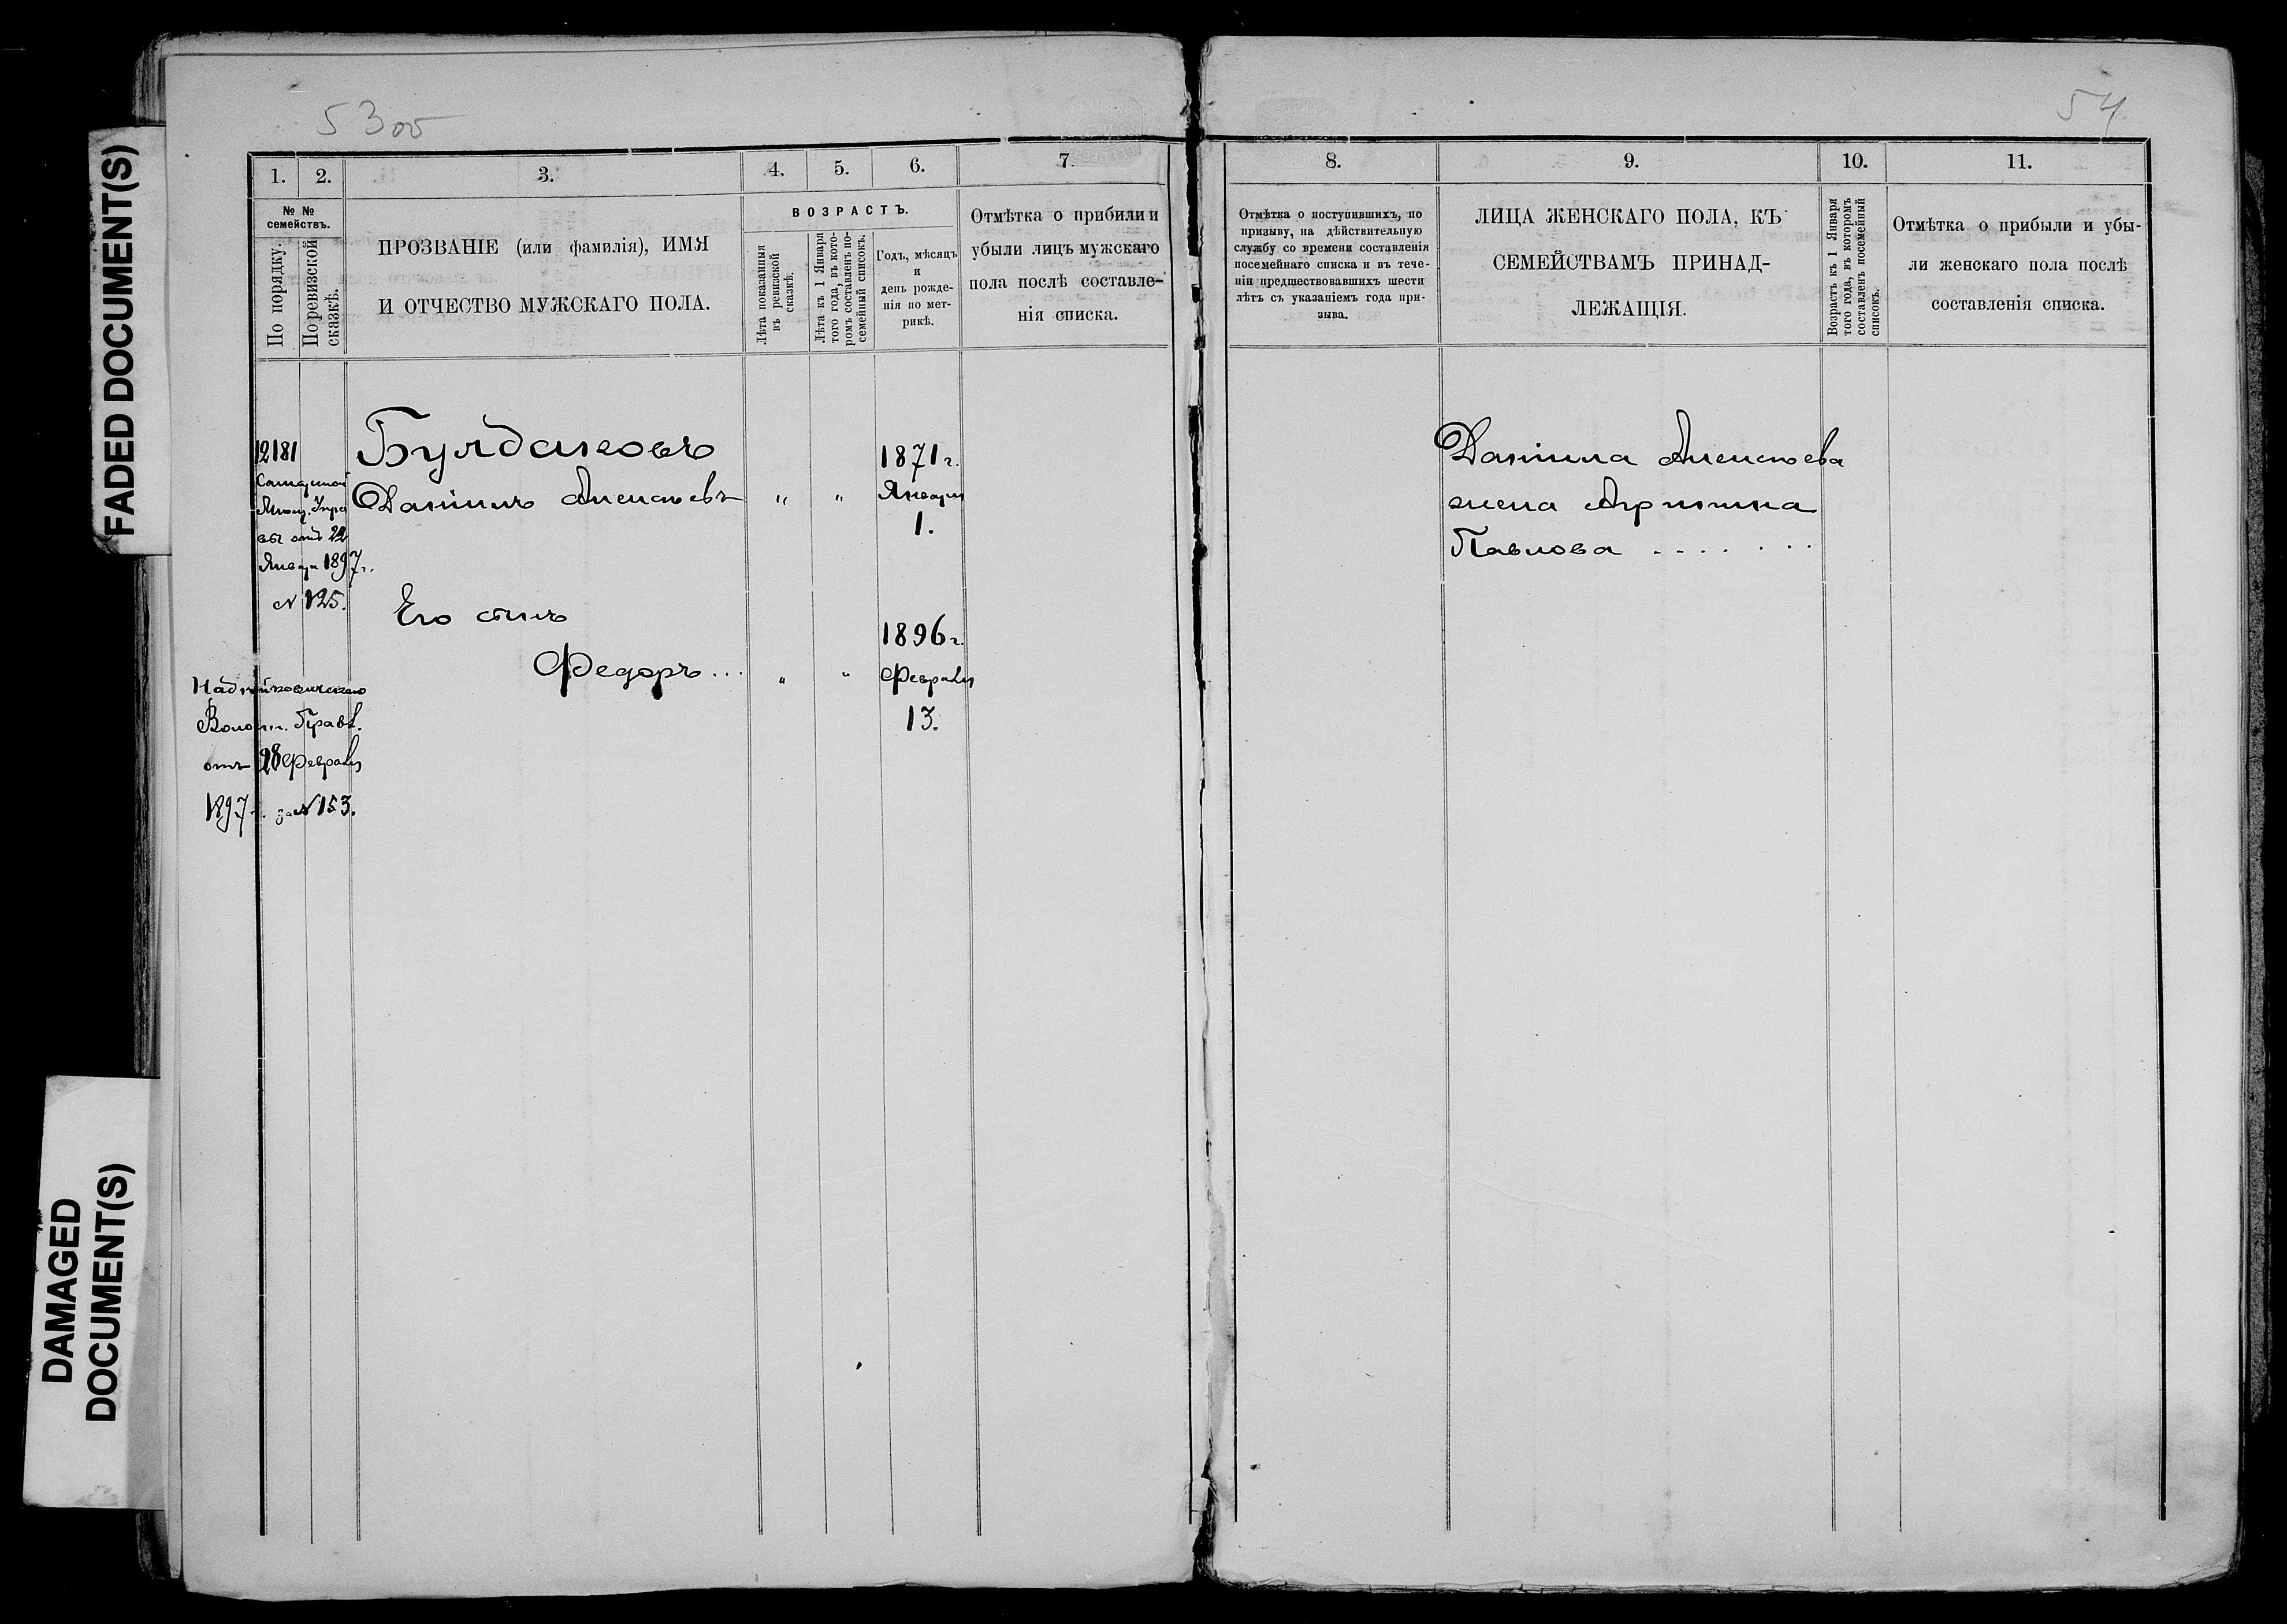 FADED DOCUMENT(S)
DAMAGED
DOCUMENT(S)
53об
1.
2.
3.
4.
5.
6.
7.
№ №
семействъ.
По порядку.
По ревизской
сказкѣ.
ПРОЗВАНІЕ (или фамилія), ИМЯ
И ОТЧЕСТВО МУЖСКАГО ПОЛА.
ВОЗРАСТЪ.
Лѣта показанныя
въ ревизской
сказкѣ.
Лѣта къ 1 Января
того года, въ кото-
ромъ составленъ по-
семейный списокъ.
Годъ, мѣсяцъ
и
день рожде-
нія по мет-
рикѣ.
Отмѣтка о прибыли и
убыли лицъ мужскаго
пола послѣ составле-
нія списка.
12181
Булдаковъ
1871 г.
Даніилъ Алексѣевъ " " Января
1.
вы отъ 22
Января 1897 г.
№ 125.
Его сынъ
1896 г.
Федоръ ... " " Февраля
13.
Волост. Правл.
отъ 28 Февраля
1897 г. за № 153.
54
8.
9.
10.
11.
Отмѣтка о поступившихъ, по
призыву, на дѣйствительную
службу со времени составленія
посемейнаго списка и въ тече-
ніи предшествовавшихъ шести
лѣтъ съ указаніемъ года при-
зыва.
ЛИЦА ЖЕНСКАГО ПОЛА, КЪ
СЕМЕЙСТВАМЪ ПРИНАД-
ЛЕЖАЩІЯ.
Возрастъ къ 1 Января
того года, въ которомъ
составленъ посемейный
списокъ.
Отмѣтка о прибыли и убы-
ли женскаго пола послѣ
составленія списка.
Даніила Алексѣева
жена Агрипина
Павлова . . . . . . .